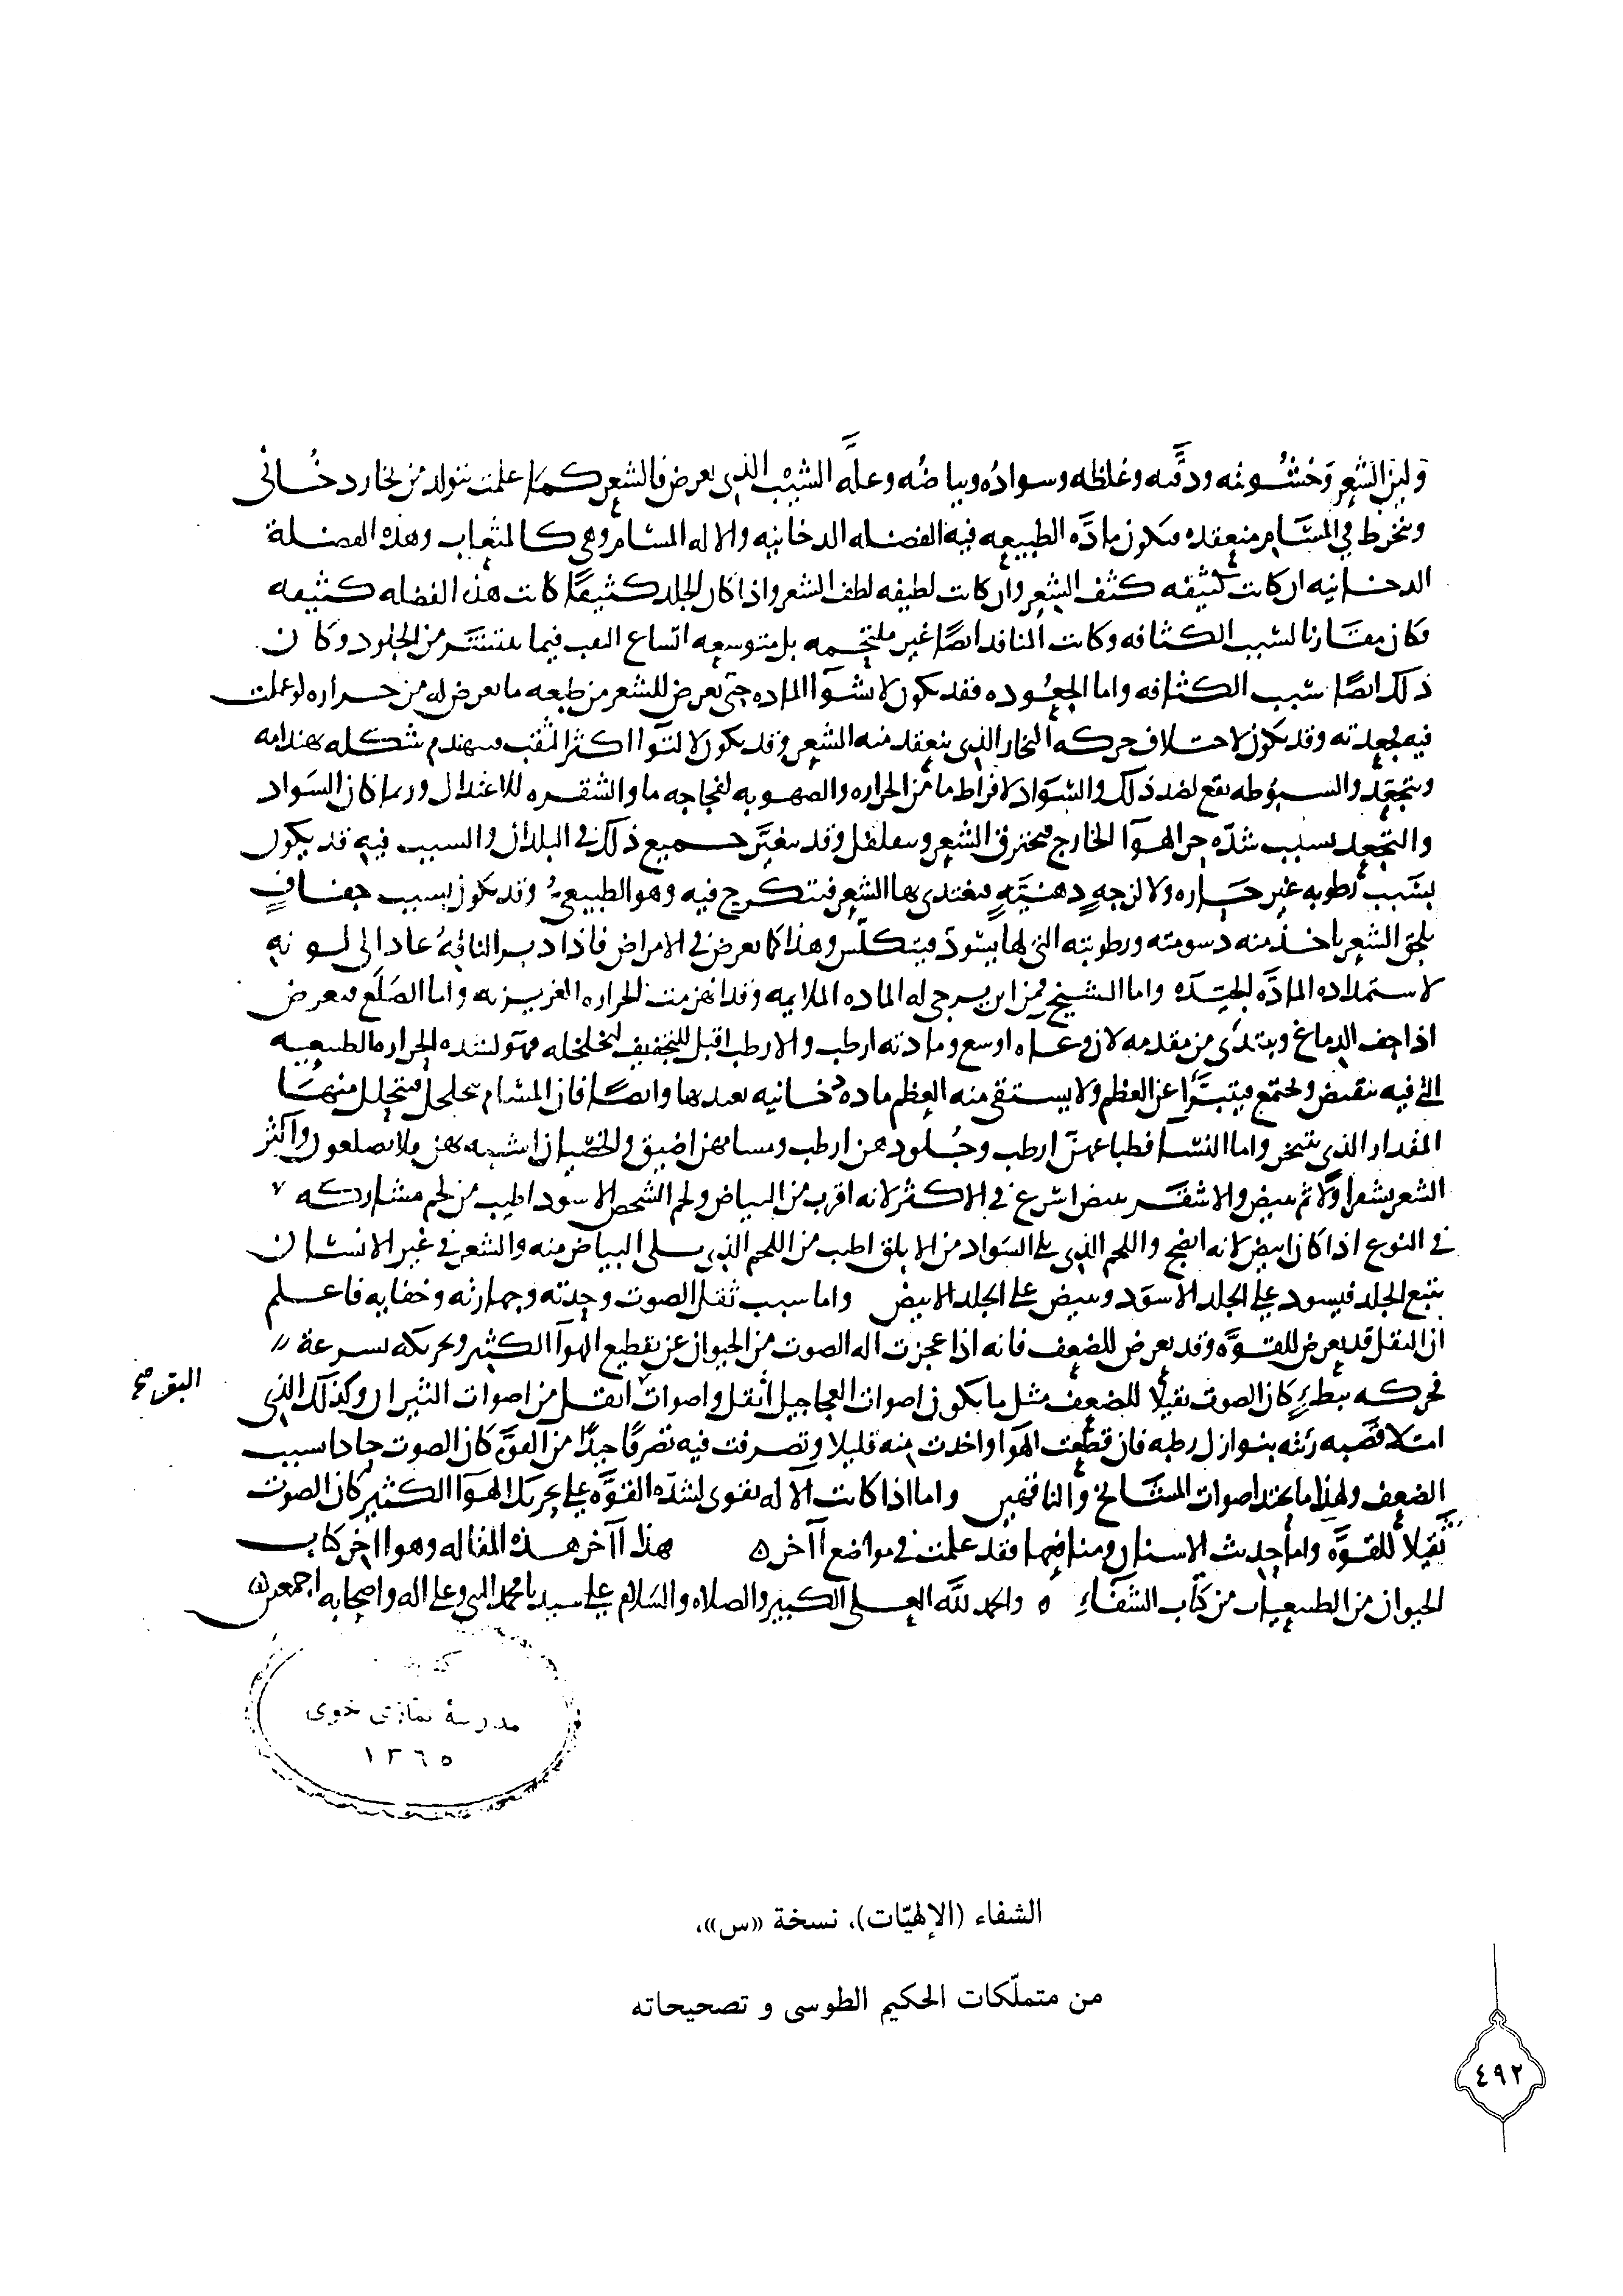 ولين الشعر وخشونته ودقته وغلظه وسواده وبياضه وعلة الشيب الذي يعرض فالشعر كما علمت يتولد من بخار دخاني
وينخرط في المسام منعقده فيكون مادة الطبيعه فيه الفضله الدخانيه والاله المسام وهي كالمثعاب وهذه الفضلة
الدخانيه ان كانت كثيفه كثف الشعر وان كانت لطيفه لطف الشعر واذا كان الجلد كثيفا كانت هذه الفضله كثيفه
فكان مقارنا لسبب الكثافه وكانت المنافد ايضا غير ملتحمه بل متوسعه اتساع الثقب فيما من الجلود وكان
ذلك ايضا سبب الكثافه واما الجعوده فقد يكون لالتوآ الماده حتى يعرض للشعر من طبعه ما يعرض له من حراره لو عملت
فيه لجعدته وقد يكون لاختلاف حركه البخار الذي ينعقد منه الشعر وقد يكون لالتوآ اكثر الثقب فيتهندم شكله بهندامه
ويتجعد والسبوطه تقع لضد ذلك والسواد لافراط ما من الحراره والصهوبه لفجاجه ما والشقره للاعتدال وربما كان السواد
والتجعد بسبب شدة حر الهوآ الخارج فيحترق الشعر ويتفلفل وقد يتغير جميع ذلك في البلدان والسبب فيه قد يكون
بسبب رطوبه غير حاره ولا لزجه دهنية فيغتدى بها الشعر فتتكرج فيه وهو الطبيعي وقد يكون بسبب جفاف
يلحق الشعر ياخذ منه دسومته ورطوبته التي لها يسود فيتكلس وهذا كما يعرض في الامراض فاذا دبر الناقه عاد الى لونه
لاستمداده المادة الجيدة واما الشيخ فمن اين يرجى له الماده الملايمه وقد انهزمت الحراره الغريزيه واما الصلع فيعرض
اذا جف الدماغ ويبتدى من مقدمه لان وعاه اوسع ومادته ارطب والارطب اقبل للتجفيف لتخلخله فهو لشده الحراره الطبيعيه
التي فيه ينقبض ويجتمع فيتبرا عن العظم ولا يستقى منه العظم ماده دخانيه يعتد بها وايضا فان المسام يتخلخل فيتحلل منها
المقدار الذي يتبخر واما النسا فطباعهن ارطب وجلودهن ارطب ومسامهن اضيق والخصيان اشبه بهن ولا يصلعون واكثر
الشعر يشقر اولا ثم يبيض والاشقر يبيض اسرع في الاكثر لانه اقرب من البياض ولحم الشحص الاسود اطيب من لحم مشاركه
في النوع اذا كان ابيض لانه انضج واللحم الذي يلى السواد من الابلق اطيب من اللحم الذي يلى البياض منه والشعر في غير الانسان
يتبع الجلد فيسود على الجلد الاسود ويبيض على الجلد الابيض واما سبب ثقل الصوت وحدته وجهارته وخفايه فاعلم
ان الثقل قد يعرض للقوة وقد يعرض للضعف فانه اذا عجزت اله الصوت من الحيوان عن تقطيع الهوآ الكثير وتحريكه بسرعة
فحركه ببطئ كان الصوت ثقيلا للضعف مثل ما يكون اصوات العجاجيل اثقل واصوات اثقل من اصوات الثيران وكذلك الذي
البقر صح
امتلا قصبه رئته بنوازل رطبه فان قطعت الهوا واخذت منه قليلا وتصرفت فيه تصرفا جيدا من القوة كان الصوت حادا بسبب
الضعف ولهذا ما يحتد اصوات المشايخ والناقهين واما اذا كانت الآله تقوى لشده القوة على تحريك الهوآ الكثير كان الصوت
ثقيلا للقوة واما حديث الاسنان ومنافعها فقد علمت في مواضع آخر ه هذا آخر هذه المقاله وهو اخر كتاب
الحيوان من الطبيعيات من كتاب الشفاء ه والحمد لله العلي الكبير والصلاه والسلام على سيدنا محمد النبي وعلى اله واصحابه اجمعين
مدرسهٔ نمازى خوى
١٣٦٥
الشفاء (الإلهيّات)، نسخة «س»،
من متملّكات الحكيم الطوسى و تصحيحاته
٤٩٢